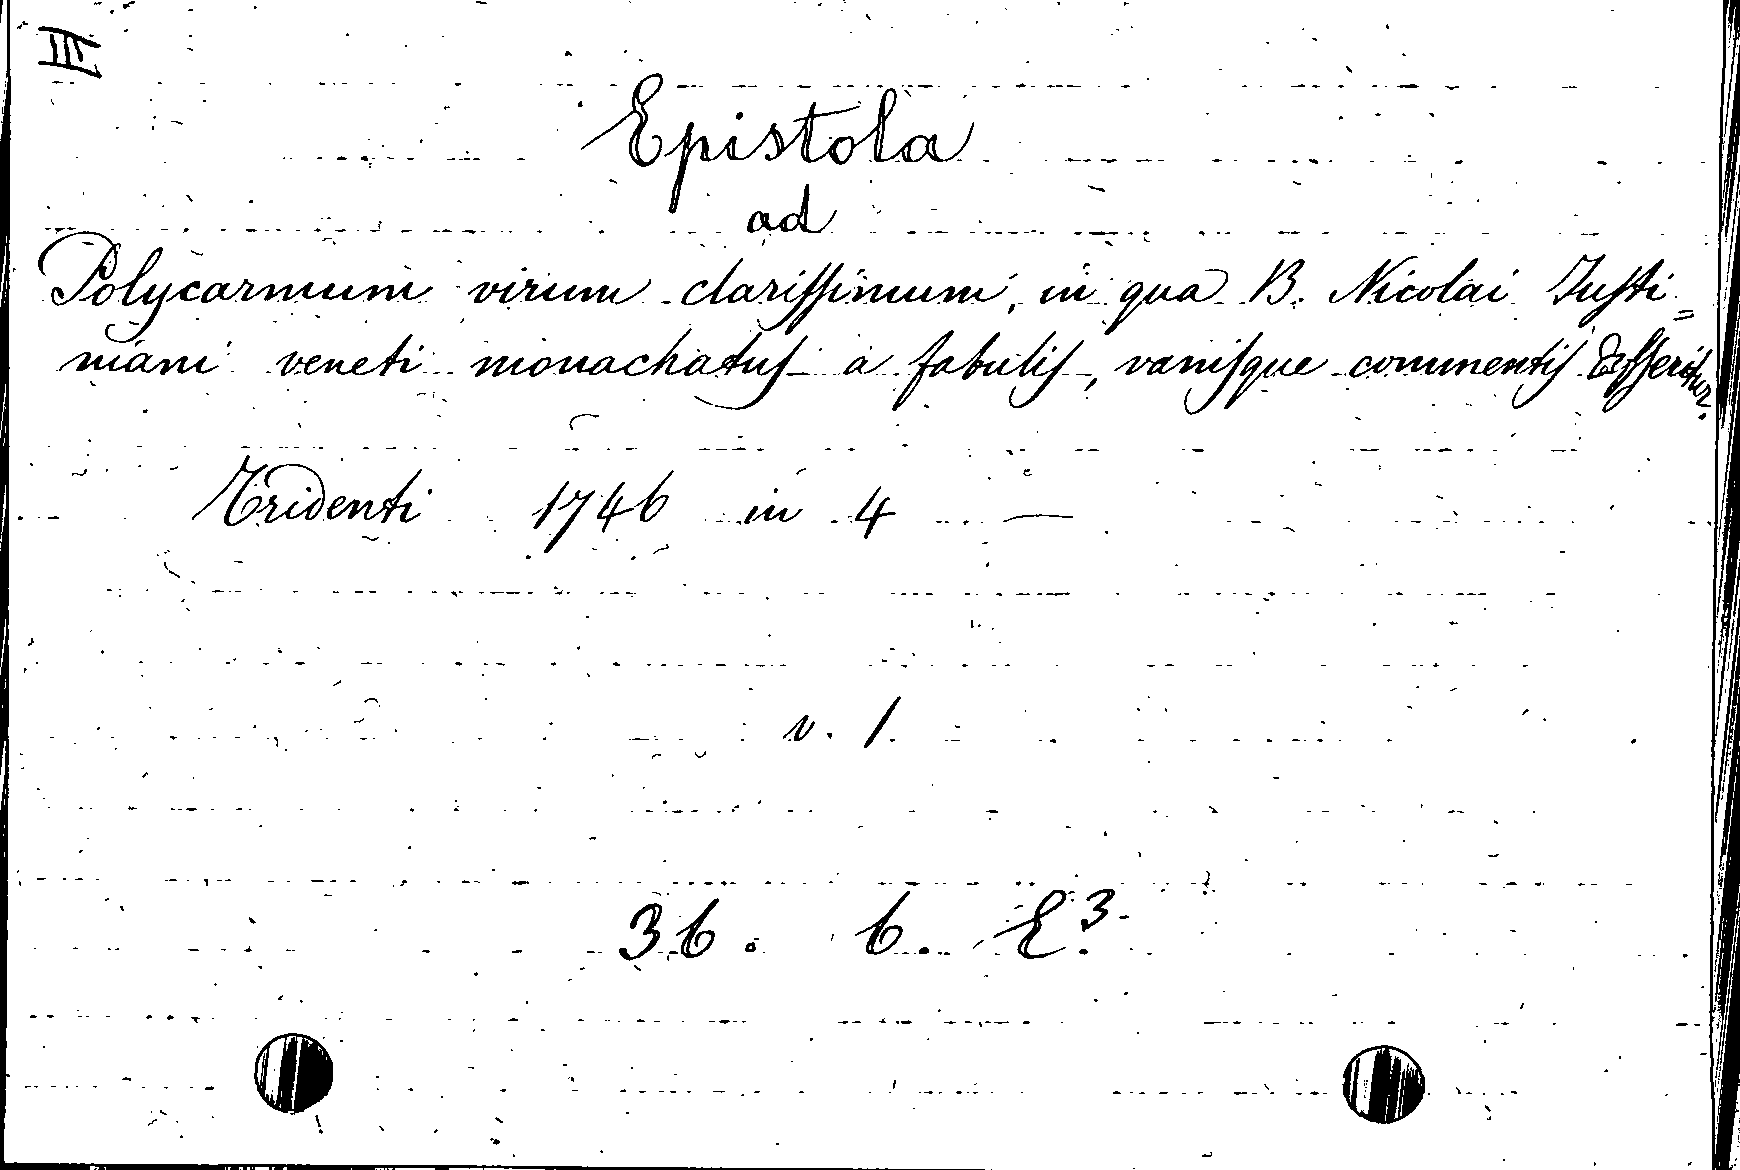 III
Epistola
ad
Polycarmum virum clarissimum, in qua B. Nicolai Justi=
niani veneti monachatus a fabulis, vanisque commentis asseritur.
Tridenti 1746 in 4 —
v. 1.
36. 6. E³.